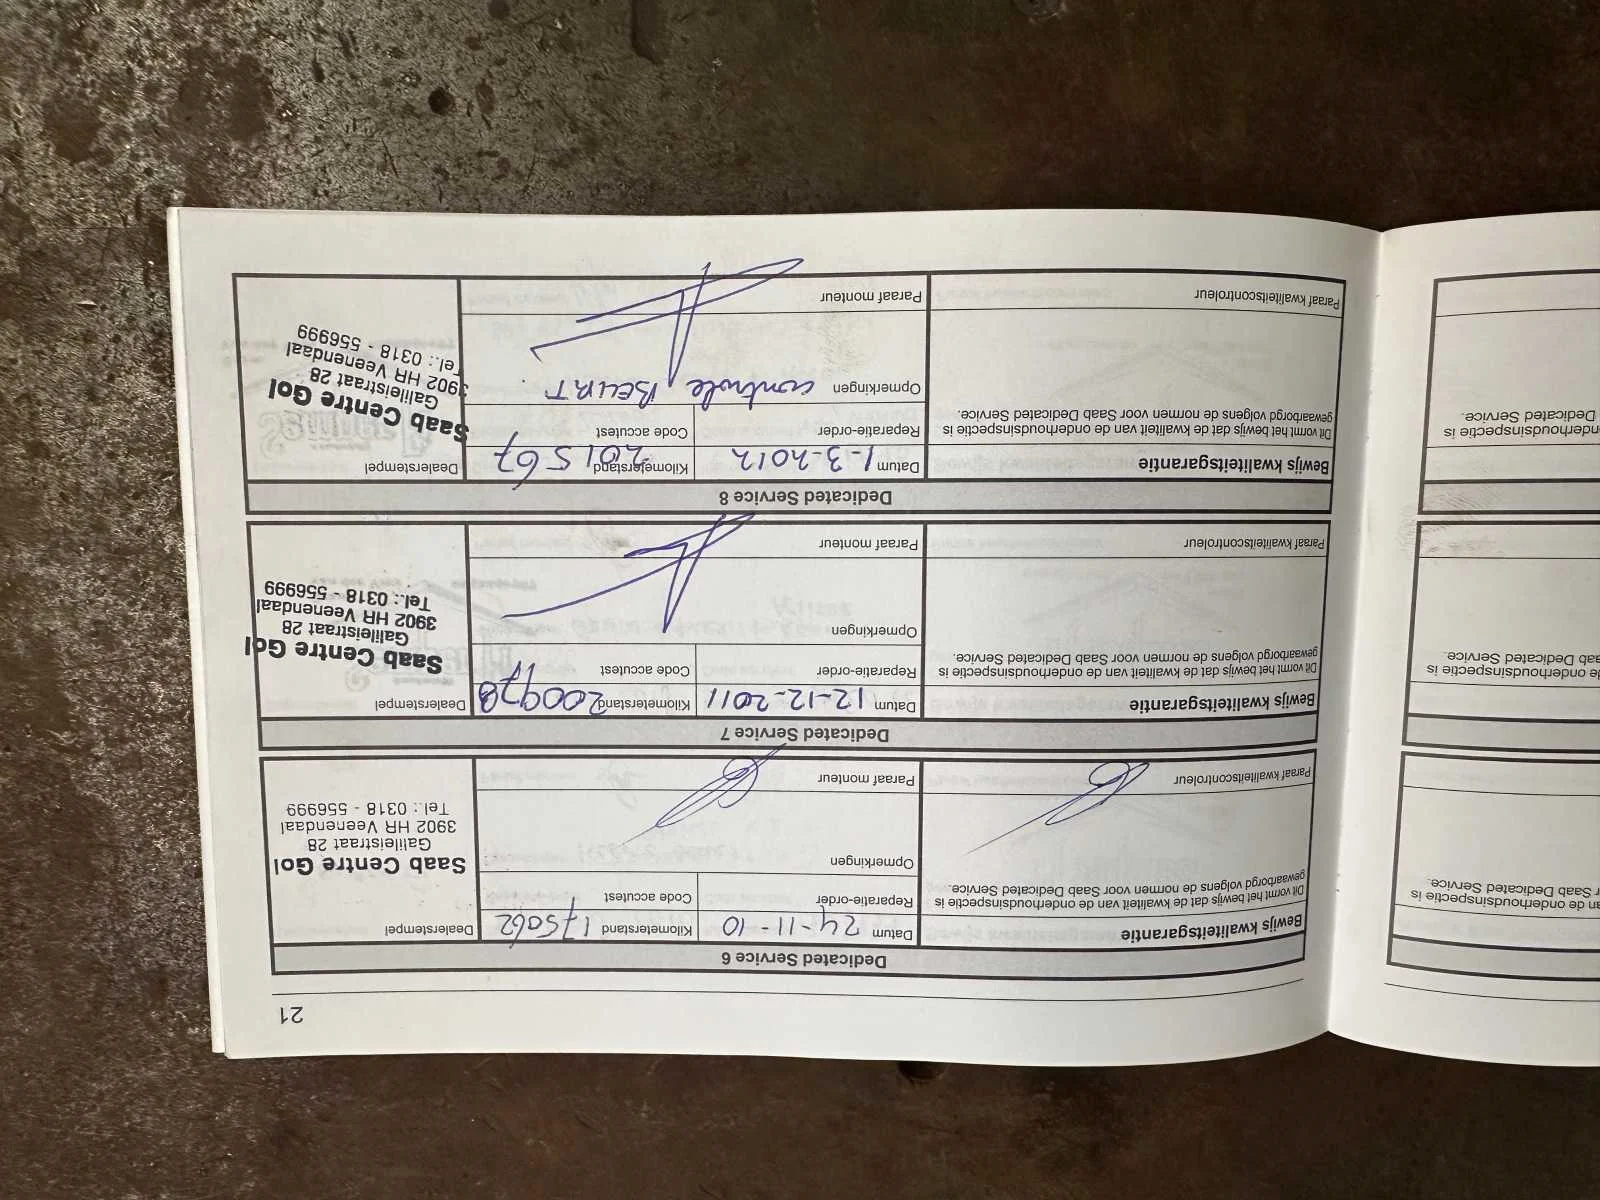 21
Dedicated Service 6
Bewijs kwaliteitsgarantie
Dit vormt het bewijs dat de kwaliteit van de onderhoudsinspectie is
gewaarborgd volgens de normen voor Saab Dedicated Service.
Paraaf kwaliteitscontroleur
Datum 24-11-10
Kilometerstand 175062
Reparatie-order
Code accutest
Opmerkingen
Paraaf monteur
Dealerstempel
Saab Centre Gol
Galileistraat 28
3902 HR Veenendaal
Tel.: 0318 - 556999
Dedicated Service 7
Bewijs kwaliteitsgarantie
Dit vormt het bewijs dat de kwaliteit van de onderhoudsinspectie is
gewaarborgd volgens de normen voor Saab Dedicated Service.
Paraaf kwaliteitscontroleur
Datum 12-12-2011
Kilometerstand
Reparatie-order
Code accutest
Opmerkingen
Paraaf monteur
Dealerstempel
Saab Centre Gol
Galileistraat 28
3902 HR Veenendaal
Tel.: 0318 - 556999
Dedicated Service 8
Bewijs kwaliteitsgarantie
Dit vormt het bewijs dat de kwaliteit van de onderhoudsinspectie is
gewaarborgd volgens de normen voor Saab Dedicated Service.
Paraaf kwaliteitscontroleur
Datum 1-3-2012
Kilometerstand 201567
Reparatie-order
Code accutest
Opmerkingen controle BEURT
Paraaf monteur
Dealerstempel
Saab Centre Gol
Galileistraat 28
3902 HR Veenendaal
Tel.: 0318 - 556999